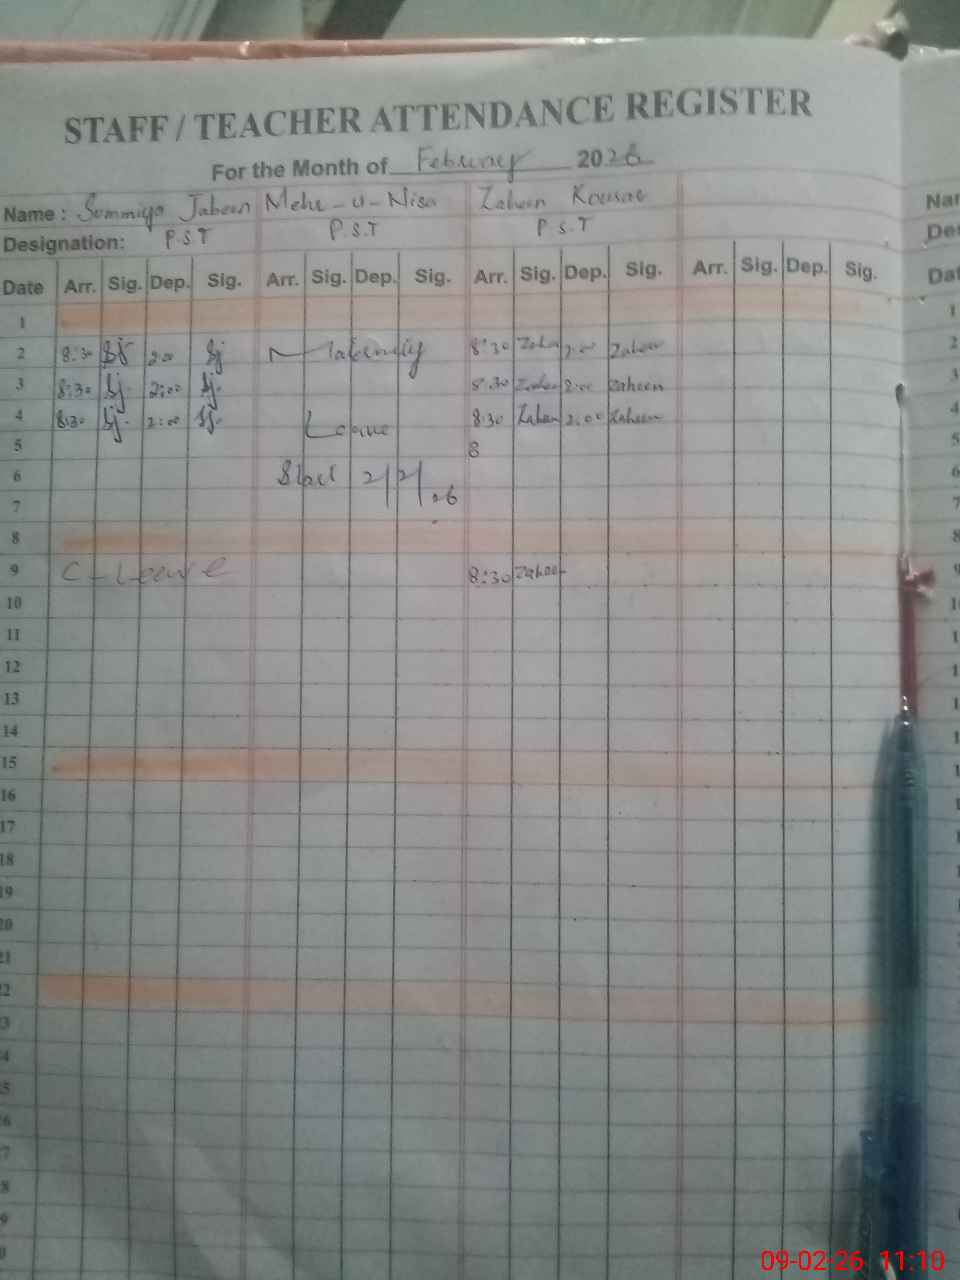 STAFF / TEACHER ATTENDANCE REGISTER
For the Month of February 2026
Name : Summiya Jabeen Mehr-u-Nisa Zaheen Kousar
Designation: P.S.T P.S.T P.S.T
Date Arr. Sig. Dep. Sig. Arr. Sig. Dep. Sig. Arr. Sig. Dep. Sig. Arr. Sig. Dep. Sig.
1
2 8:30 Sj 2:00 Sj Maternity 8:30 Zaheen 2:00 Zaheen
3 8:30 Sj. 2:00 Sj. 8:30 Zaheen 2:00 Zaheen
4 8:30 Sj. 2:00 Sj. Leave 8:30 Zaheen 2:00 Zaheen
5 8
6 Start 2/2/26
7
8
9 C-Leave 8:30 Zaheen
10
11
12
13
14
15
16
17
18
19
20
21
22
23
09-02-26 11:10